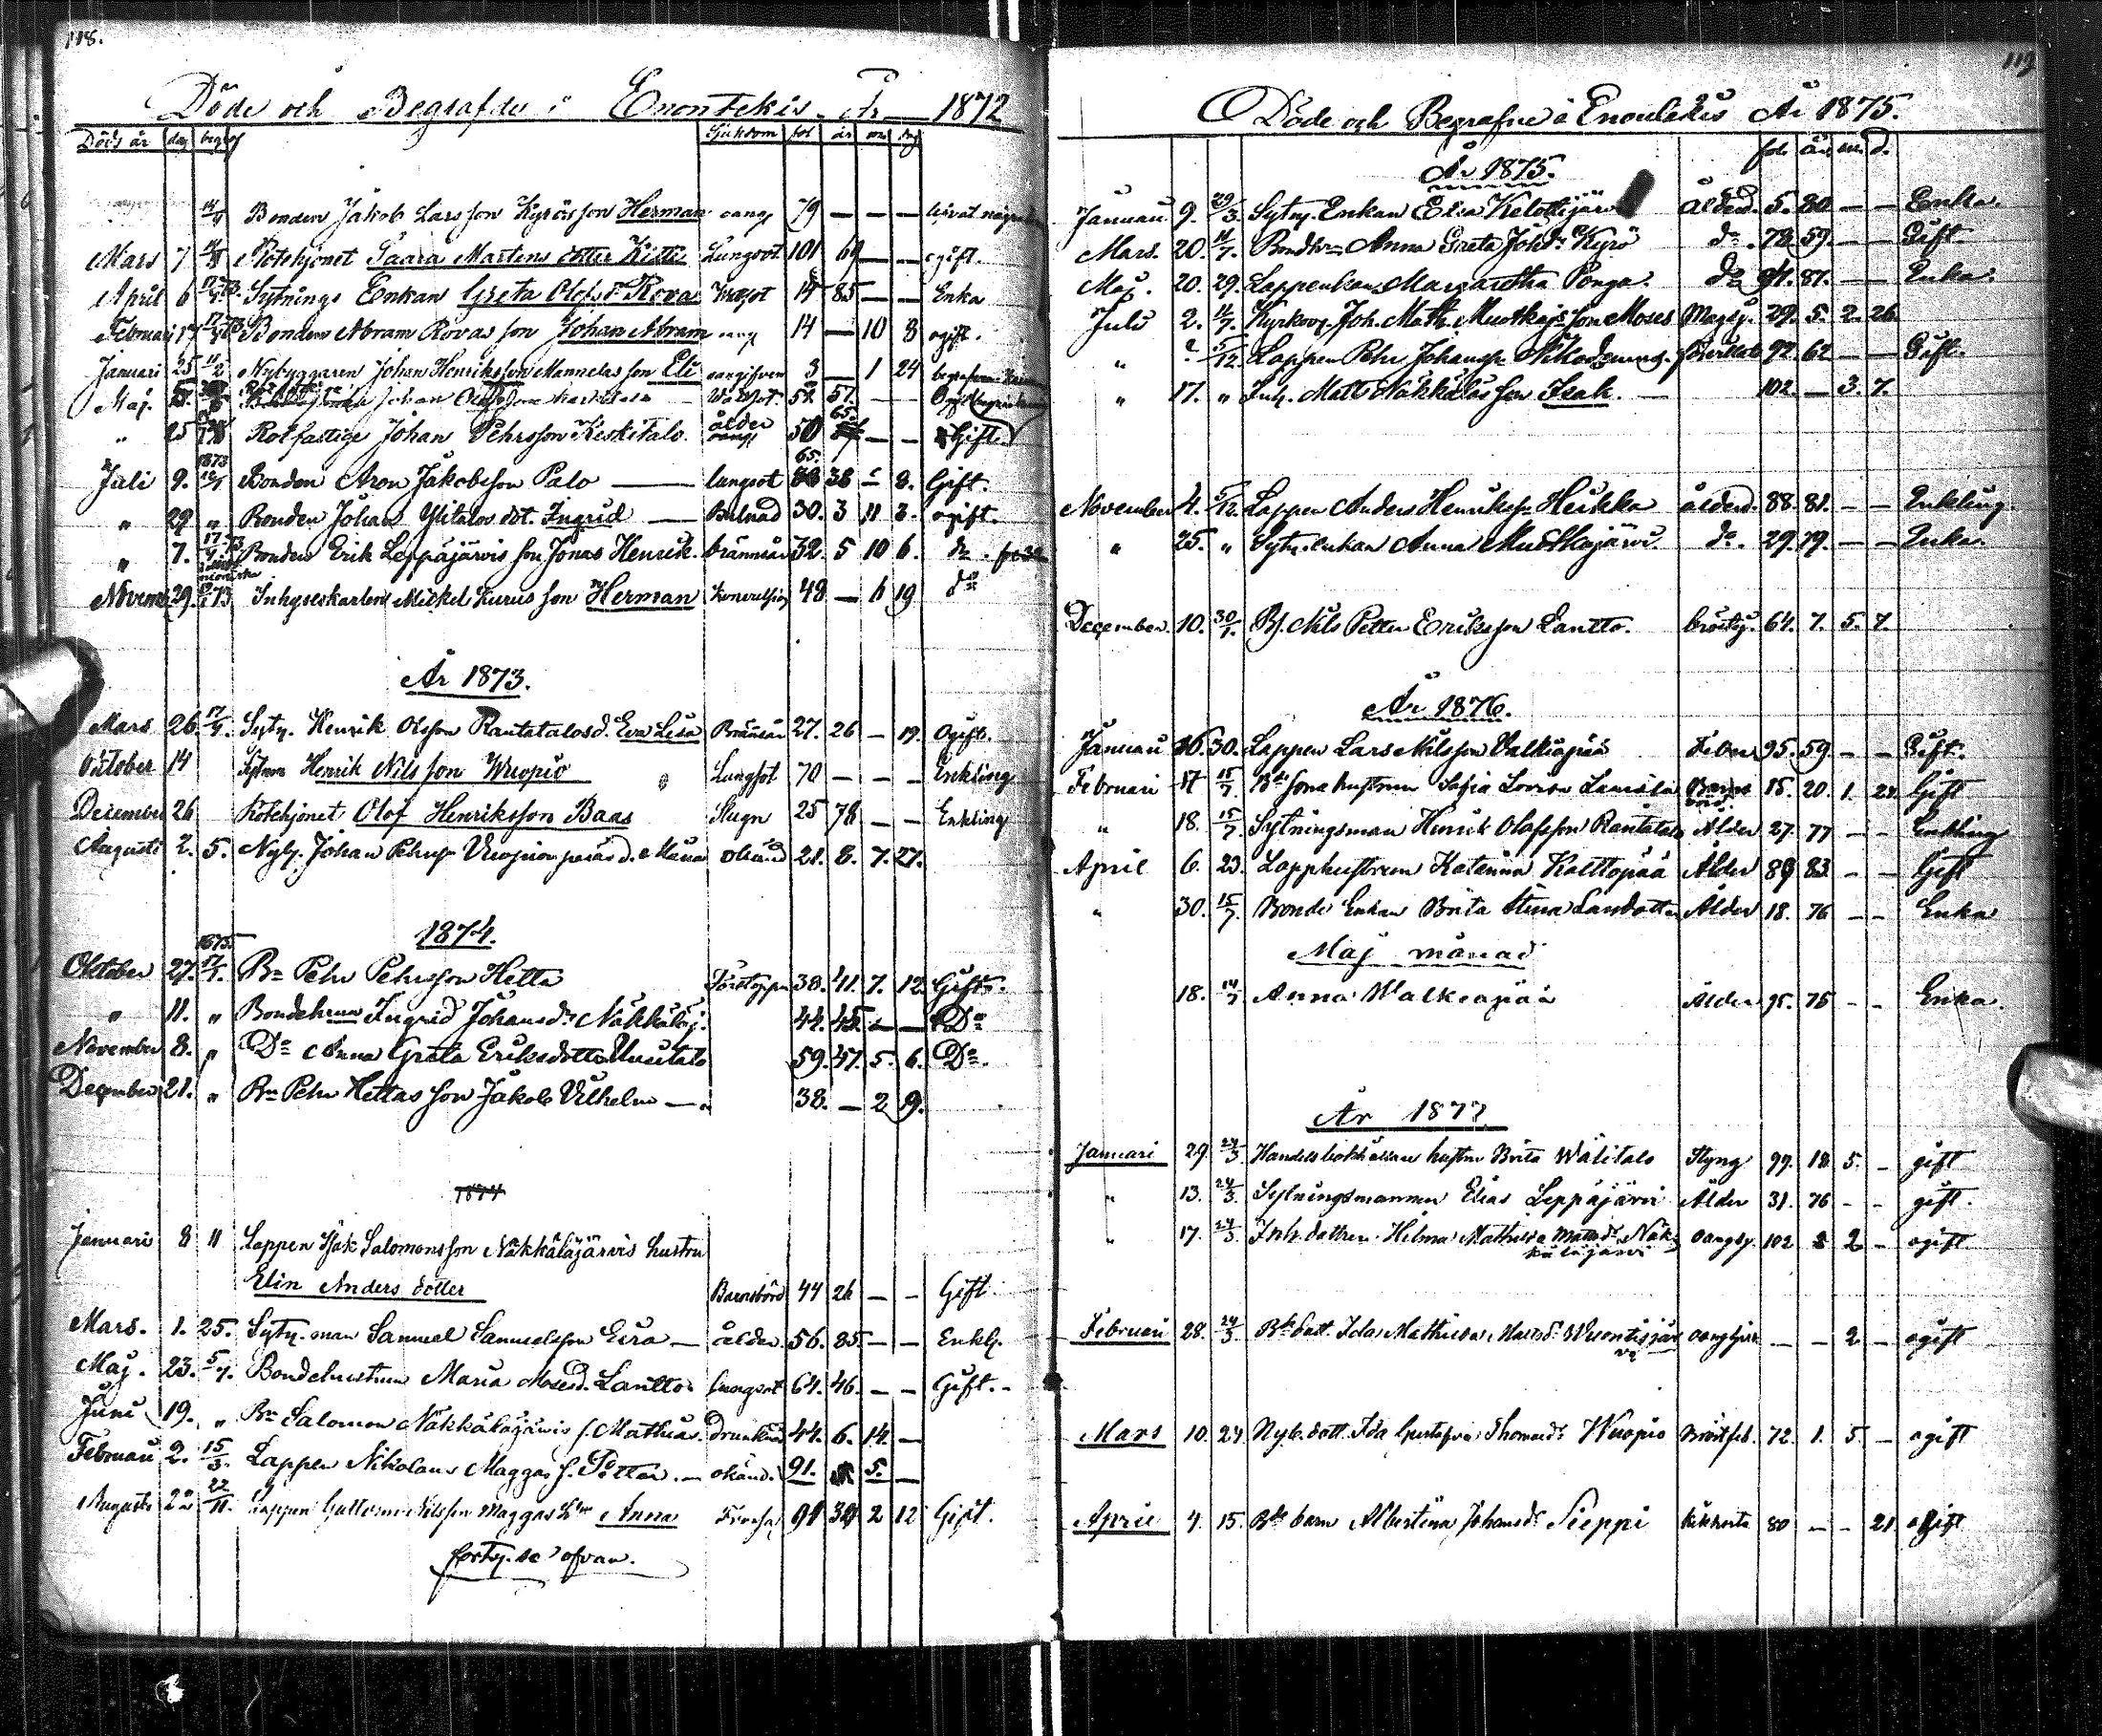 118.
Döde och Begrafde i Enontekis År 1872
Döds år dag begrf Sjukdom fol år m dag
14/4 Bonden Jakob Larsson Kyrös son Herman oang 79 — — —
Mars 7 Rotehjonet Saara Martens dotter Kitti Lungsot 101 69 — — ogift.
April 6 Sytnings Enkan Greta Olofsdr Rova 14 85 — — Enka
Februari 17 Bonden Abram Rovas son Johan Abram oang 14 — 10 8 ogift.
Januari 25 11/2 Nybyggaren Johan Henriksson Mannelas son Eli oangifven 3 — 1 24
Maj. Johan 52. 57. — —
„ 25 Rotfattige Johan Pehrsson Keskitalo. ålder 50 65. — — Gift.
Juli 9. 1873 Bonden Aron Jakobsson Palo — lungsot 65. 38 – 8. Gift.
„ 29 „ Bonden Johan Ylitalos dot. Ingrid — 30. 3 11 3. ogift.
„ 7. Bonden Erik Leppäjärvis son Jonas Henrik. brännsår 32. 5 10 6. do.
Novem 29. Inhyseskarlen Mickel Kurus son Herman Konvulsion 48 — 6 19 do
År 1873.
Mars 26. 17/4. Syty. Henrik Olsson Rantatalos d. Eva Lisa Brännsår 27. 26 — 19. Ogift.
Oktober 14 Sytnm Henrik Nilsson Wuopio „ Lungsot 70 — — — Enkling
December 26 Rotehjonet Olof Henriksson Baas Slagn 25 78 — — Enkling
Augusti 2. 5. Nyb. Johan Pehrss. Vuopion d. Maria okänd 21. 8. 7. 27.
1874.
Oktober 27. 1875. 17/1. Bn Pehr Pehrsson Hetta 38. 41. 7. 12. Gift.
„ 11. „ Bondehrun Ingrid Johansdr Näkkäläj. 44. 45. — — Do
November 8. „ Do Anna Greta Eriksdotter Uusitalo 59. 47. 5. 6. Do.
December 21. „ Bn Pehr Hettas son Jakob Vilhelm —. 38. — 2 9.
1874
Januari 8 11 Lappen Isak Salomonsson Näkkäläjärvis hustru
Elin Anders dotter Barnsbörd 44 26 — — Gift
Mars. 1. 25. Syty. man Samuel Samuelsson Eira — ålder. 56. 85. — — Enklg.
Maj. 23. 5/7. Bondehustrun Maria Mosesd. Lantto. lungsot 64. 46. — — Gift.
Juni 19. „ Bn Salomon Näkkäläjärvis s. Mathias. Drunknad 44. 6. 14. —
Februari 2. 15/3. Lappen Nikolaus Maggas s. Petter. — okänd. 91. 5. —
Augusti 22 22/11. Lappen Guttorm Nilsson Maggas hru Anna 91 39 2 12 Gift.
forts. se ofvan.
119
Döde och Begrafne i Enontekis År 1875.
fol. år m. d.
År 1875.
Januari 9. 29/3. Sytny. Enkan Elsa Kelottijärvi ålderd. 5. 80 — — Enka.
Mars. 20. 11/7. Bondhrn Anna Greta Johdr Kyrö do. 78. 59. — — Gift.
Maj. 20. 29. Lappenkan Margaretha Ponga. do 87. — — Enka.
Juli 2. 11/7. Kyrkovg. Joh. Math. Muotkajs. son Moses Magsj. 29. 5. 2. 26.
„ ? 5/12. Lappen Pehr Johanss. Nikodemus. 92. 62 — — Gift.
„ 17. „ Inh. Matts Näkkäläs son Isak. — 102. — 3. 7.
November 4. 5/12. Lappen Anders Henriksson Heikka ålderd. 88. 81. — — Enkling.
„ 25. „ Sytn. enkan Anna Muotkajärvi. do. 29. 79. — — Enka.
December. 10. 30/1. Bs. Nils Petter Eriksson Lantto. bröstsj. 64. 7. 5. 7.
År 1876.
Januari 16. 30. Lappen Lars Nilsson Valkiapää Feber 95. 59. — — Gift.
Februari 17 15/7. Bde sons hustrun Sofia Lovisa Barnsbörd. 15. 20. 1. 27. Gift
„ 18. 15/7. Sytningsman Henrik Olofsson Rantatalo Ålder 27. 77 — — Enkling
April 6. 23. Lapphustrun Katarina Kalttopää Ålder 89 83. — — Gift
„ 30. 15/7. Bonde Enkan Brita Stina Larsdotter Ålder 18. 76 — — Enka
Maj månad
18. 14/7 Anna Walkeapää Ålder 95. 75 — — Enka.
År 1877.
Januari 29. 24/3. Handelsbokhållare hustru Brita Wälitalo Styng 99. 18 5. — gift
„ 13. 24/3. Sytningsmannen Elias Leppäjärvi Ålder 31. 76 – – gift.
„ 17. 24/3. Inh. dottren Hilma Mathilda Mattsdr Näkkäläjärvi oangsj. 102 2 — ogift
Februari 28. 24/3. Bde dott. Ida Mathilda Mattsdr Wuontisjärvi oangifven — — 2 — ogift
Mars 10. 24 Nyb. dott. Ida Gustafva Thomasdr Wuopio Bröstfeb. 72. 1. 5. — ogift
April 4. 15. Bde barn Albertina Johansdr Sieppi kikhosta 80 — — 21 ogift